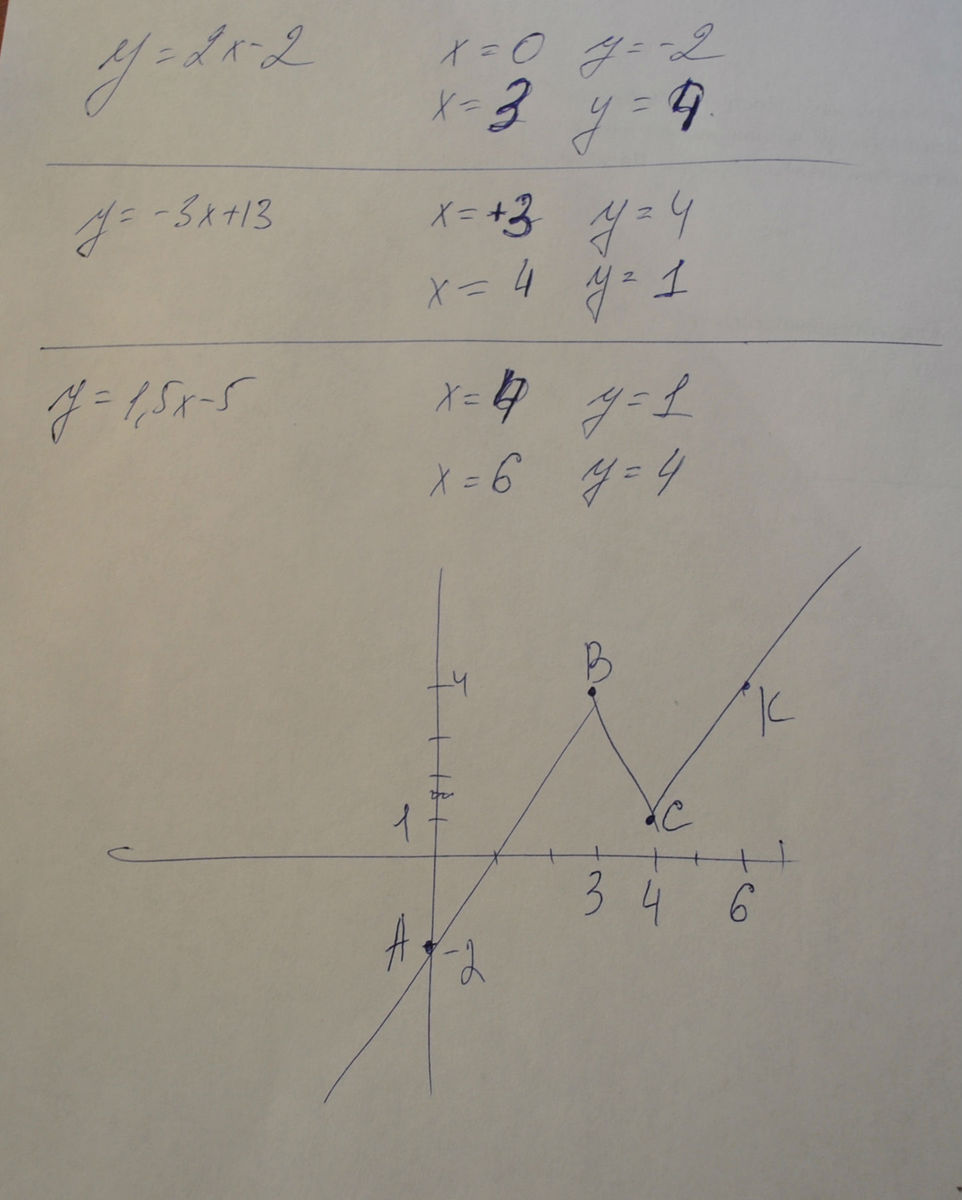 y = 2x-2 x = 0 y = -2
x = 3 y = 4.
y = -3x+13 x = +3 y = 4
x = 4 y = 1
y = 1,5x-5 x = 4 y = 1
x = 6 y = 4
B
4
K
1 C
3 4 6
A -2